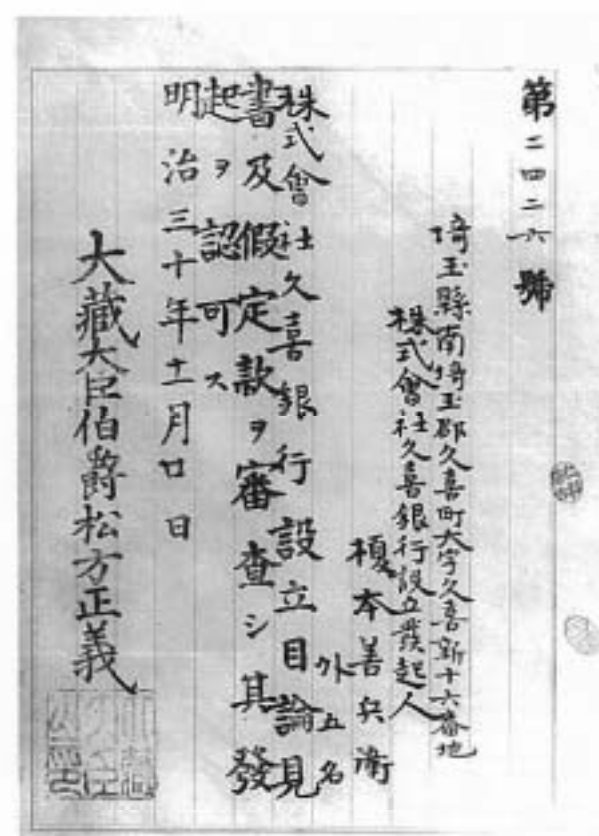 第二四二六號
埼玉縣南埼玉郡久喜町大字久喜新十六番地
株式會社久喜銀行設立發起人
榎本善兵衛
外五名
株式會社久喜銀行設立目論見
書及假定款ヲ審査シ其發
起ヲ認可ス
明治三十年十一月廿日
大藏大臣伯爵松方正義